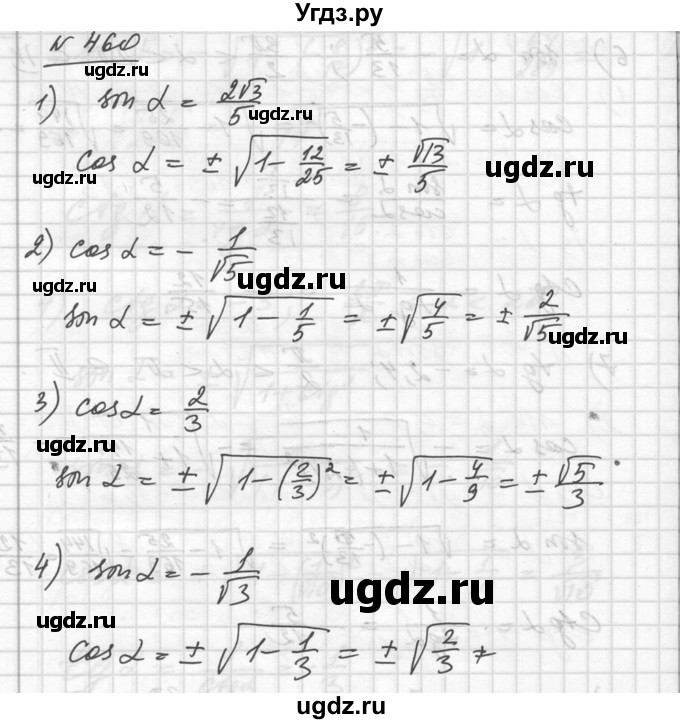 Угдз.ру
N 460
ugdz.ru
1) sin α = 2√3/5
ugdz.ru
cos α = ± √(1 - 12/25) = ± √13/5
ugdz.ru
ugdz.ru
2) cos α = - 1/√5
ugdz.ru
ugdz.ru
sin α = ± √(1 - 1/5) = ± √(4/5) = ± 2/√5
ugdz.ru
3) cos α = 2/3
ugdz.ru
sin α = ± √(1 - (2/3)²) = ± √(1 - 4/9) = ± √5/3
4) sin α = - 1/√3
ugdz.ru
ugdz.ru
cos α = ± √(1 - 1/3) = ± √(2/3)
ugdz.ru
ugdz.ru